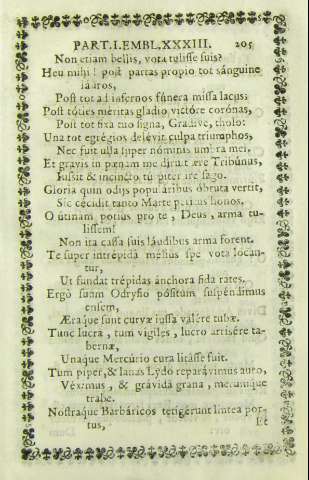 PART.I.EMBL.XXXIII. 205
Non etiam bellis, vota tulisse suis?
Heu mihi! post partas propio tot sánguine
láuros,
Post tot ad infernos fúnera missa lacus;
Post tóties méritas gladio victóre corónas,
Post tot fixa tuo signa, Gradíve, tholo:
Una tot egrégios delévit culpa triumphos,
Nec fuit ulla super nóminis umbra mei.
Et gravis in pœnam me dirutæ ære Tribúnus,
Jussit & incincto túrpiter ire sago.
Gloria quin odijs populáribus óbruta vertit,
Sic cécidit tanto Marte petítus honos.
O útinam potiùs pro te, Deus, arma tu-
lissem!
Non ita cassa suis láudibus arma forent.
Te super intrépida messus spe vota locán-
tur,
Ut fundat trépidas ánchora fida rates.
Ergò suum Odrysio pósitum suspéndimus
ensem,
Æraque sunt curvæ iussa valére tubæ.
Tunc lucra, tum vigiles, lucro arrisére ta-
bernæ,
Unaque Mercúrio cura litásse fuit.
Tum piper, & lanas Lydo reparávimus auro,
Véximus, & grávida grana, merumque
trabe.
Nostraque Barbáricos tetigérunt lintea por-
tus, Et